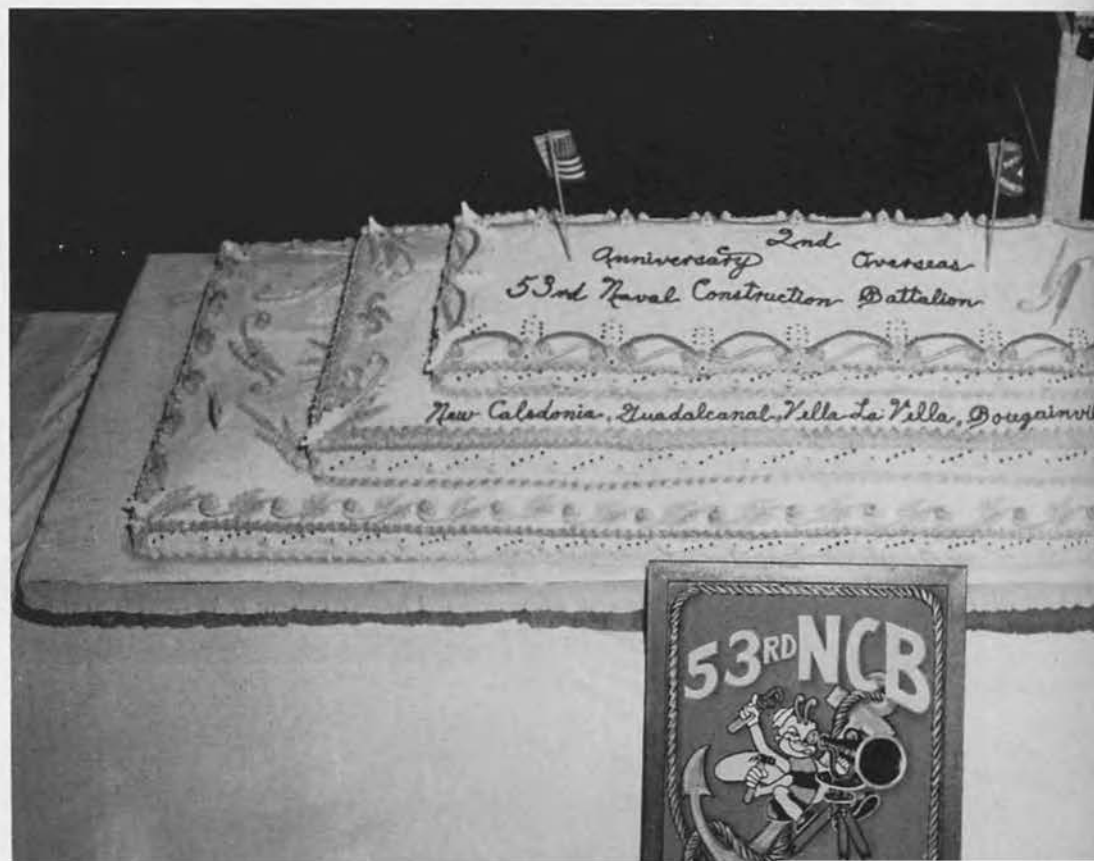 2nd
Anniversary Overseas
53rd Naval Construction Battalion
New Caledonia, Guadalcanal, Vella La Vella, Bougainvil
53RD NCB